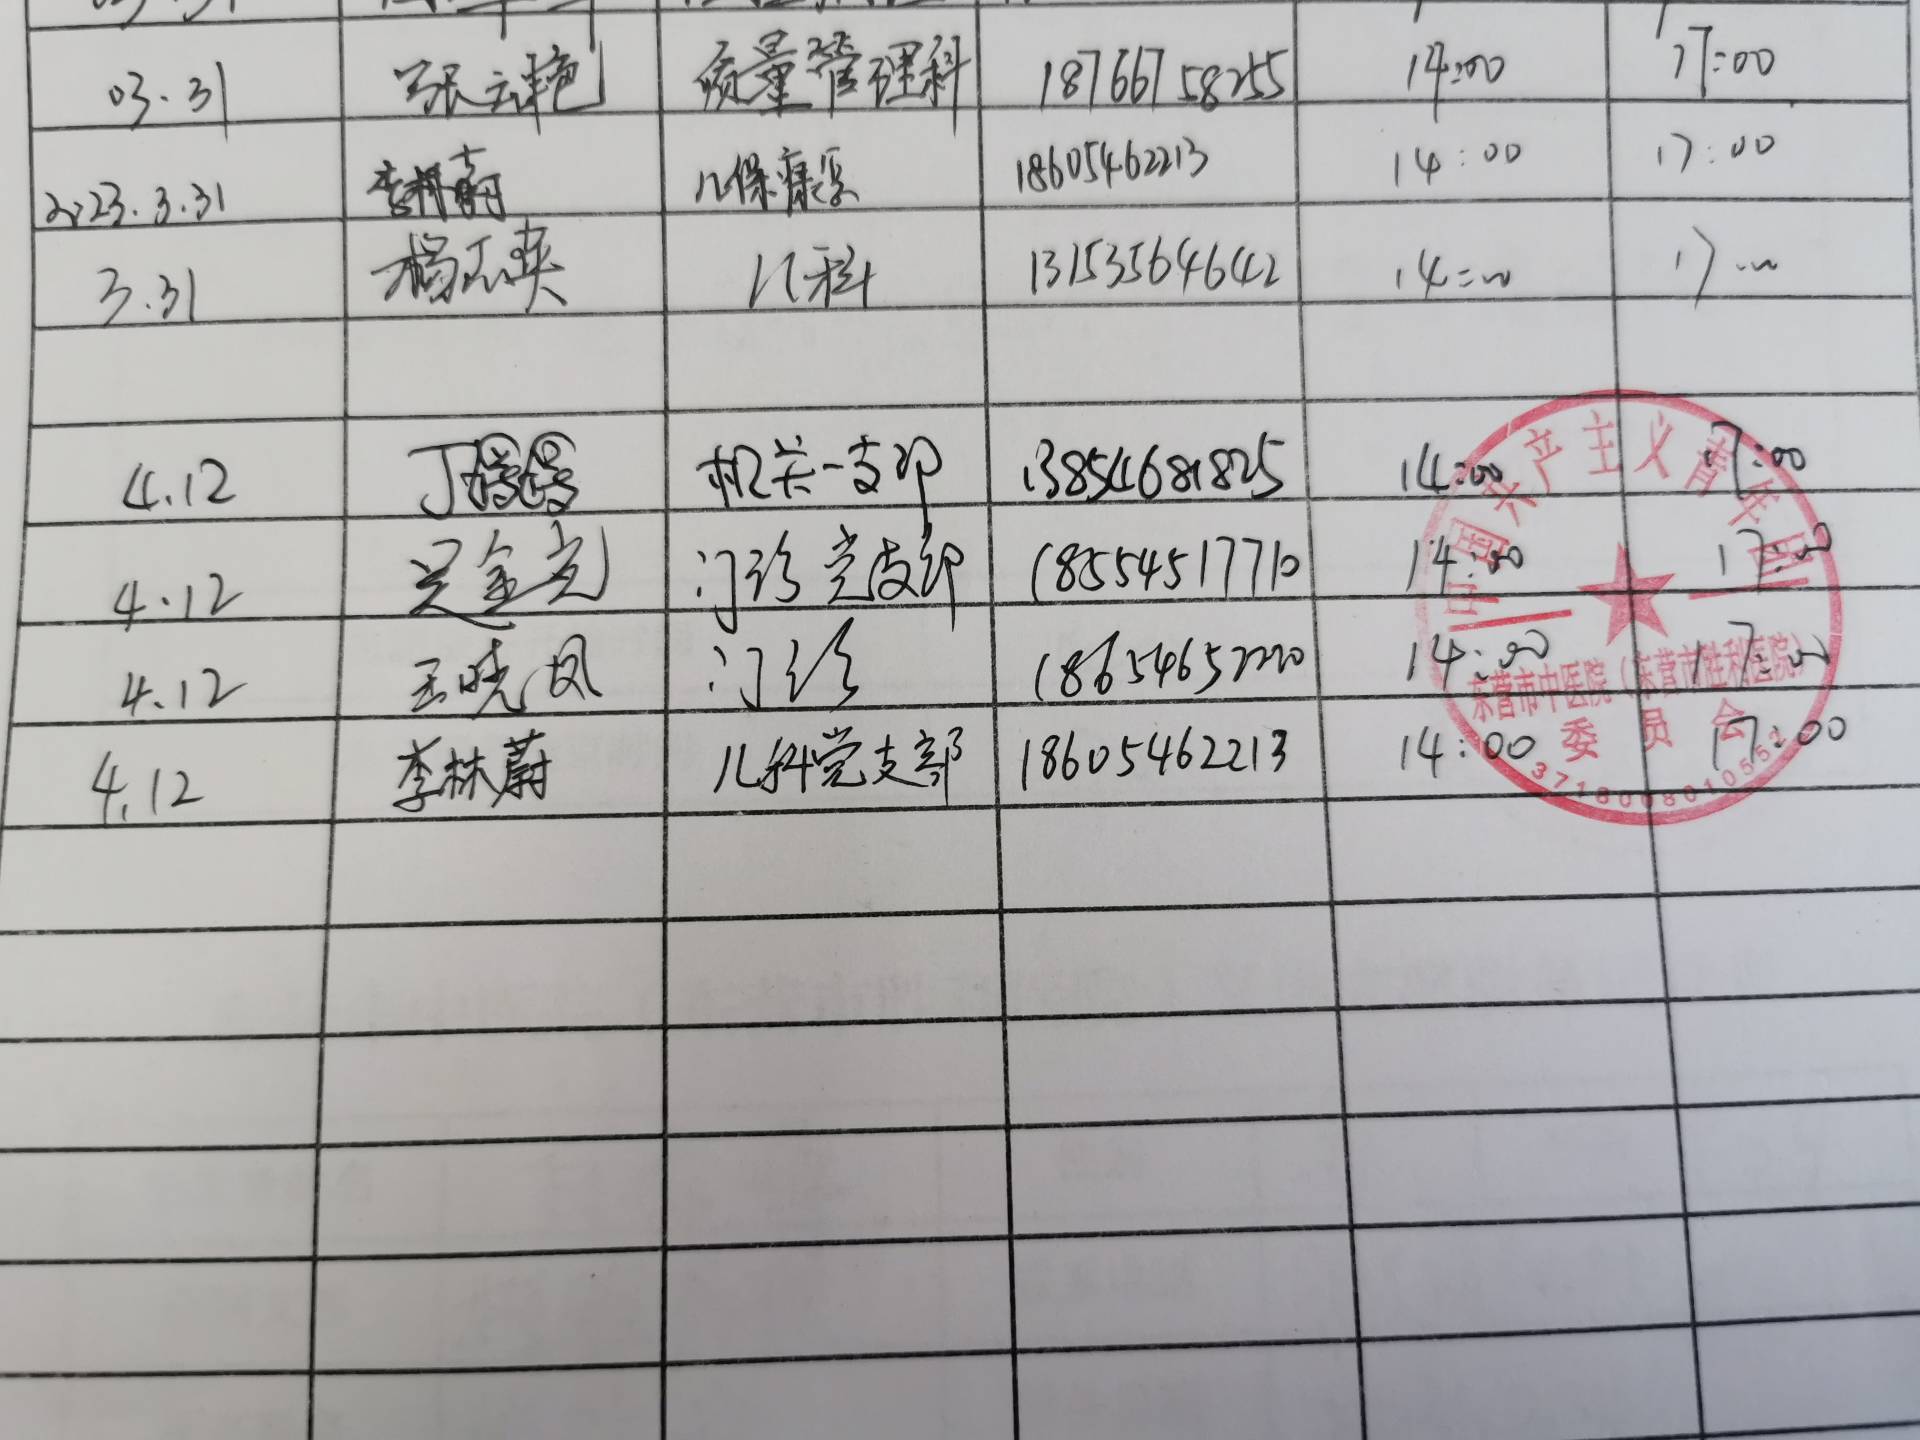 03.31 张云艳 质量管理科 18766758255 14:00 17:00
2023.3.31 李林蔚 儿保康复 18605462213 14:00 17:00
3.31 杨 儿科 13153564642 14:00 17:00
4.12 丁 机关一支部 13854681825 14:00 17:00
4.12 金亮 门诊党支部 18554517710 14:00 17:00
4.12 王晓凤 门诊 18654652220 14:00 17:00
4.12 李林蔚 儿科党支部 18605462213 14:00 17:00
中国共产主义青年团
东营市中医院（东营市胜利医院）
委员会
3718008010552